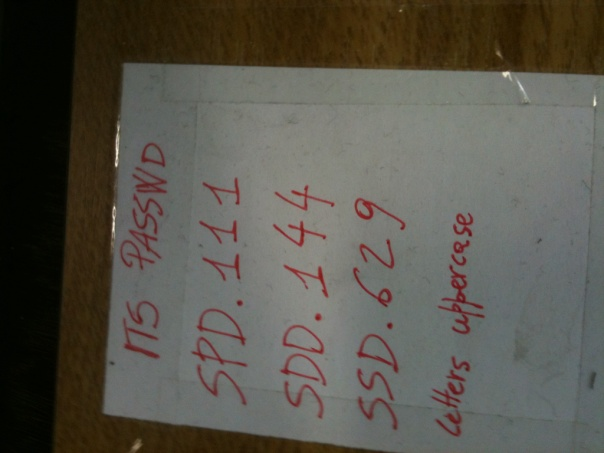 ITS PASSWD
SPD.111
SDD.144
SSD.629
letters uppercase